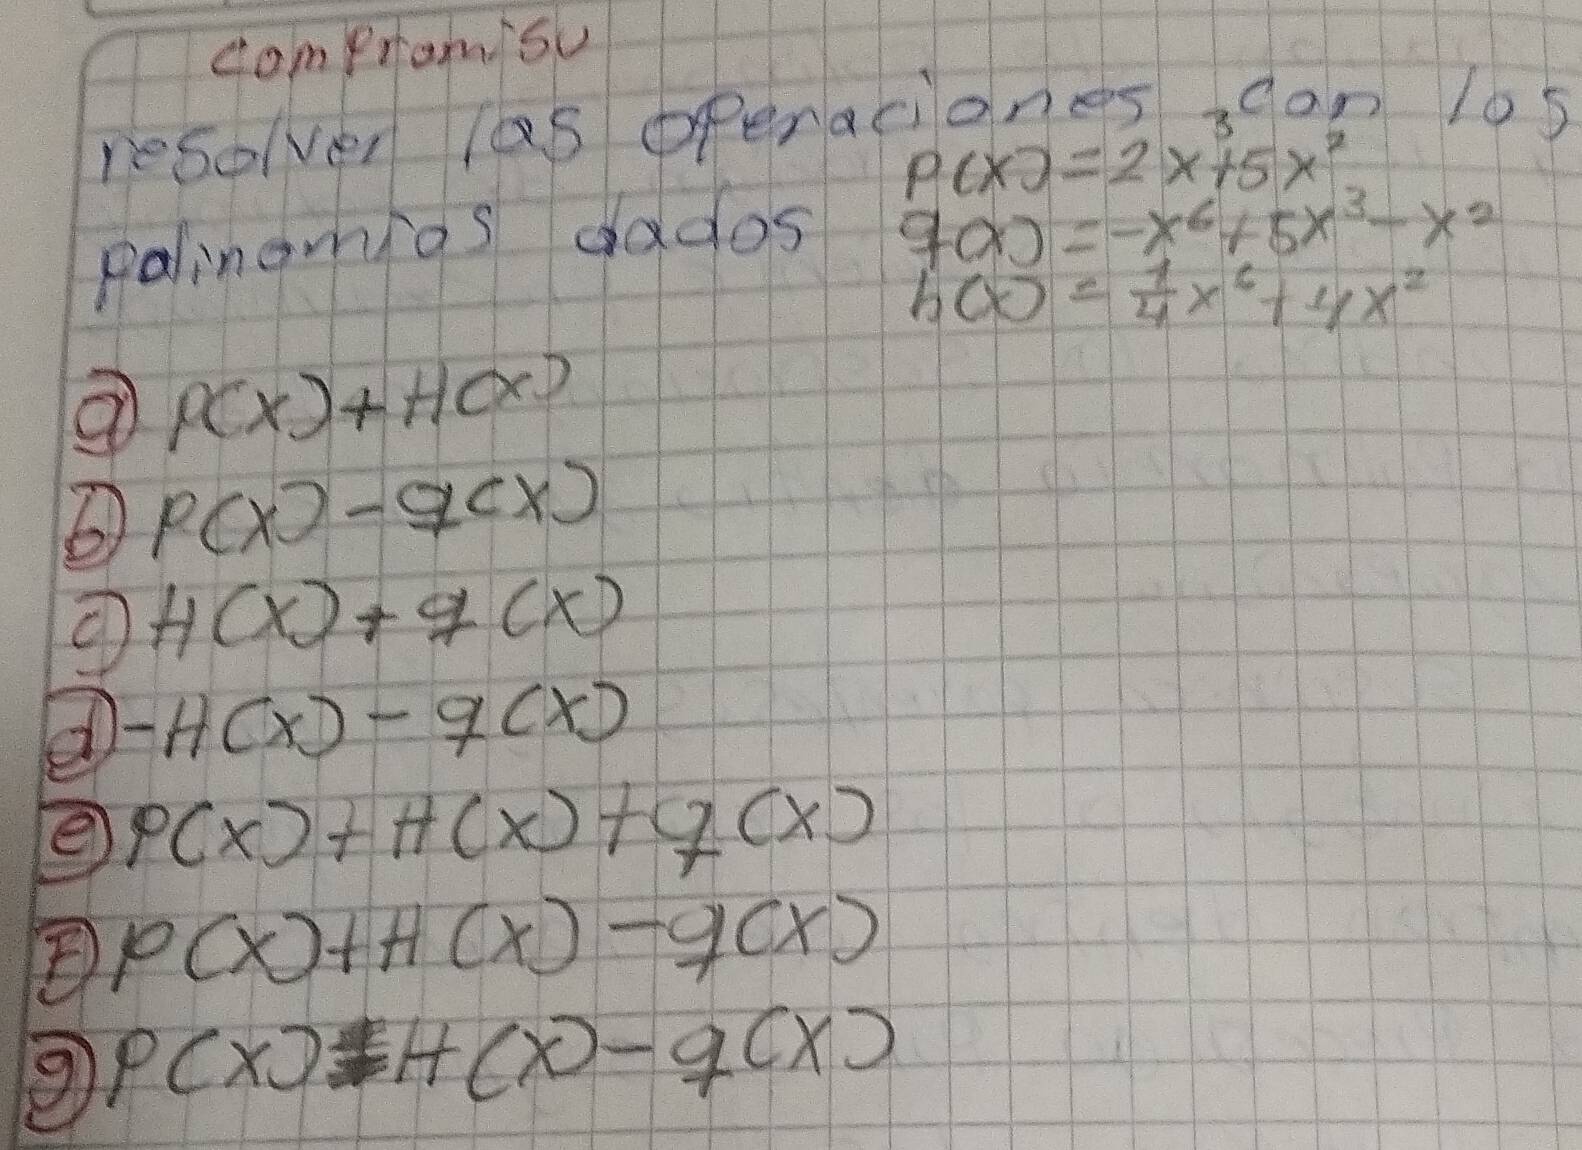 compromiso
resolver las operaciones con los
polinomios dados
P(x)=2x³+5x²
q(x)=-x⁶+5x³-x²
h(x)=1/4x⁶+4x²
a) P(x)+H(x)
b) P(x)-q(x)
c) H(x)+q(x)
d) -H(x)-q(x)
e) P(x)+H(x)+q(x)
F) P(x)+H(x)-q(x)
g) P(x) H(x)-q(x)